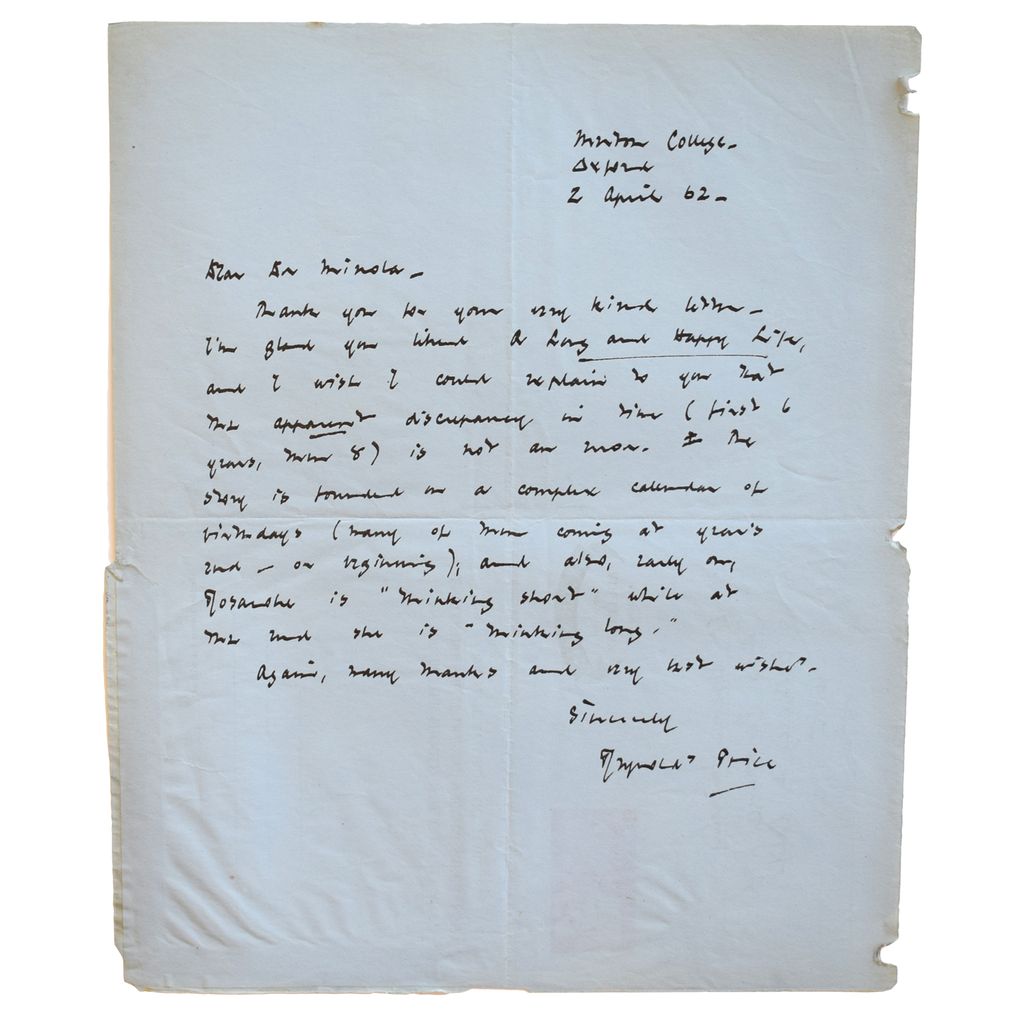 Merton College –
Oxford
2 April 62 –
Dear Dr Minola –
Thank you for your very kind letter –
I'm glad you liked A Long and Happy Life,
and I wish I could explain to you that
the apparent discrepancy in time (first 6
years, then 8) is not an error. The
story is founded on a complex calendar of
birthdays (many of them coming at year's
end – or beginning), and also, early on,
Rosacoke is "thinking short" while at
the end she is "thinking long."
Again, many thanks and very best wishes –
Sincerely
Reynolds Price